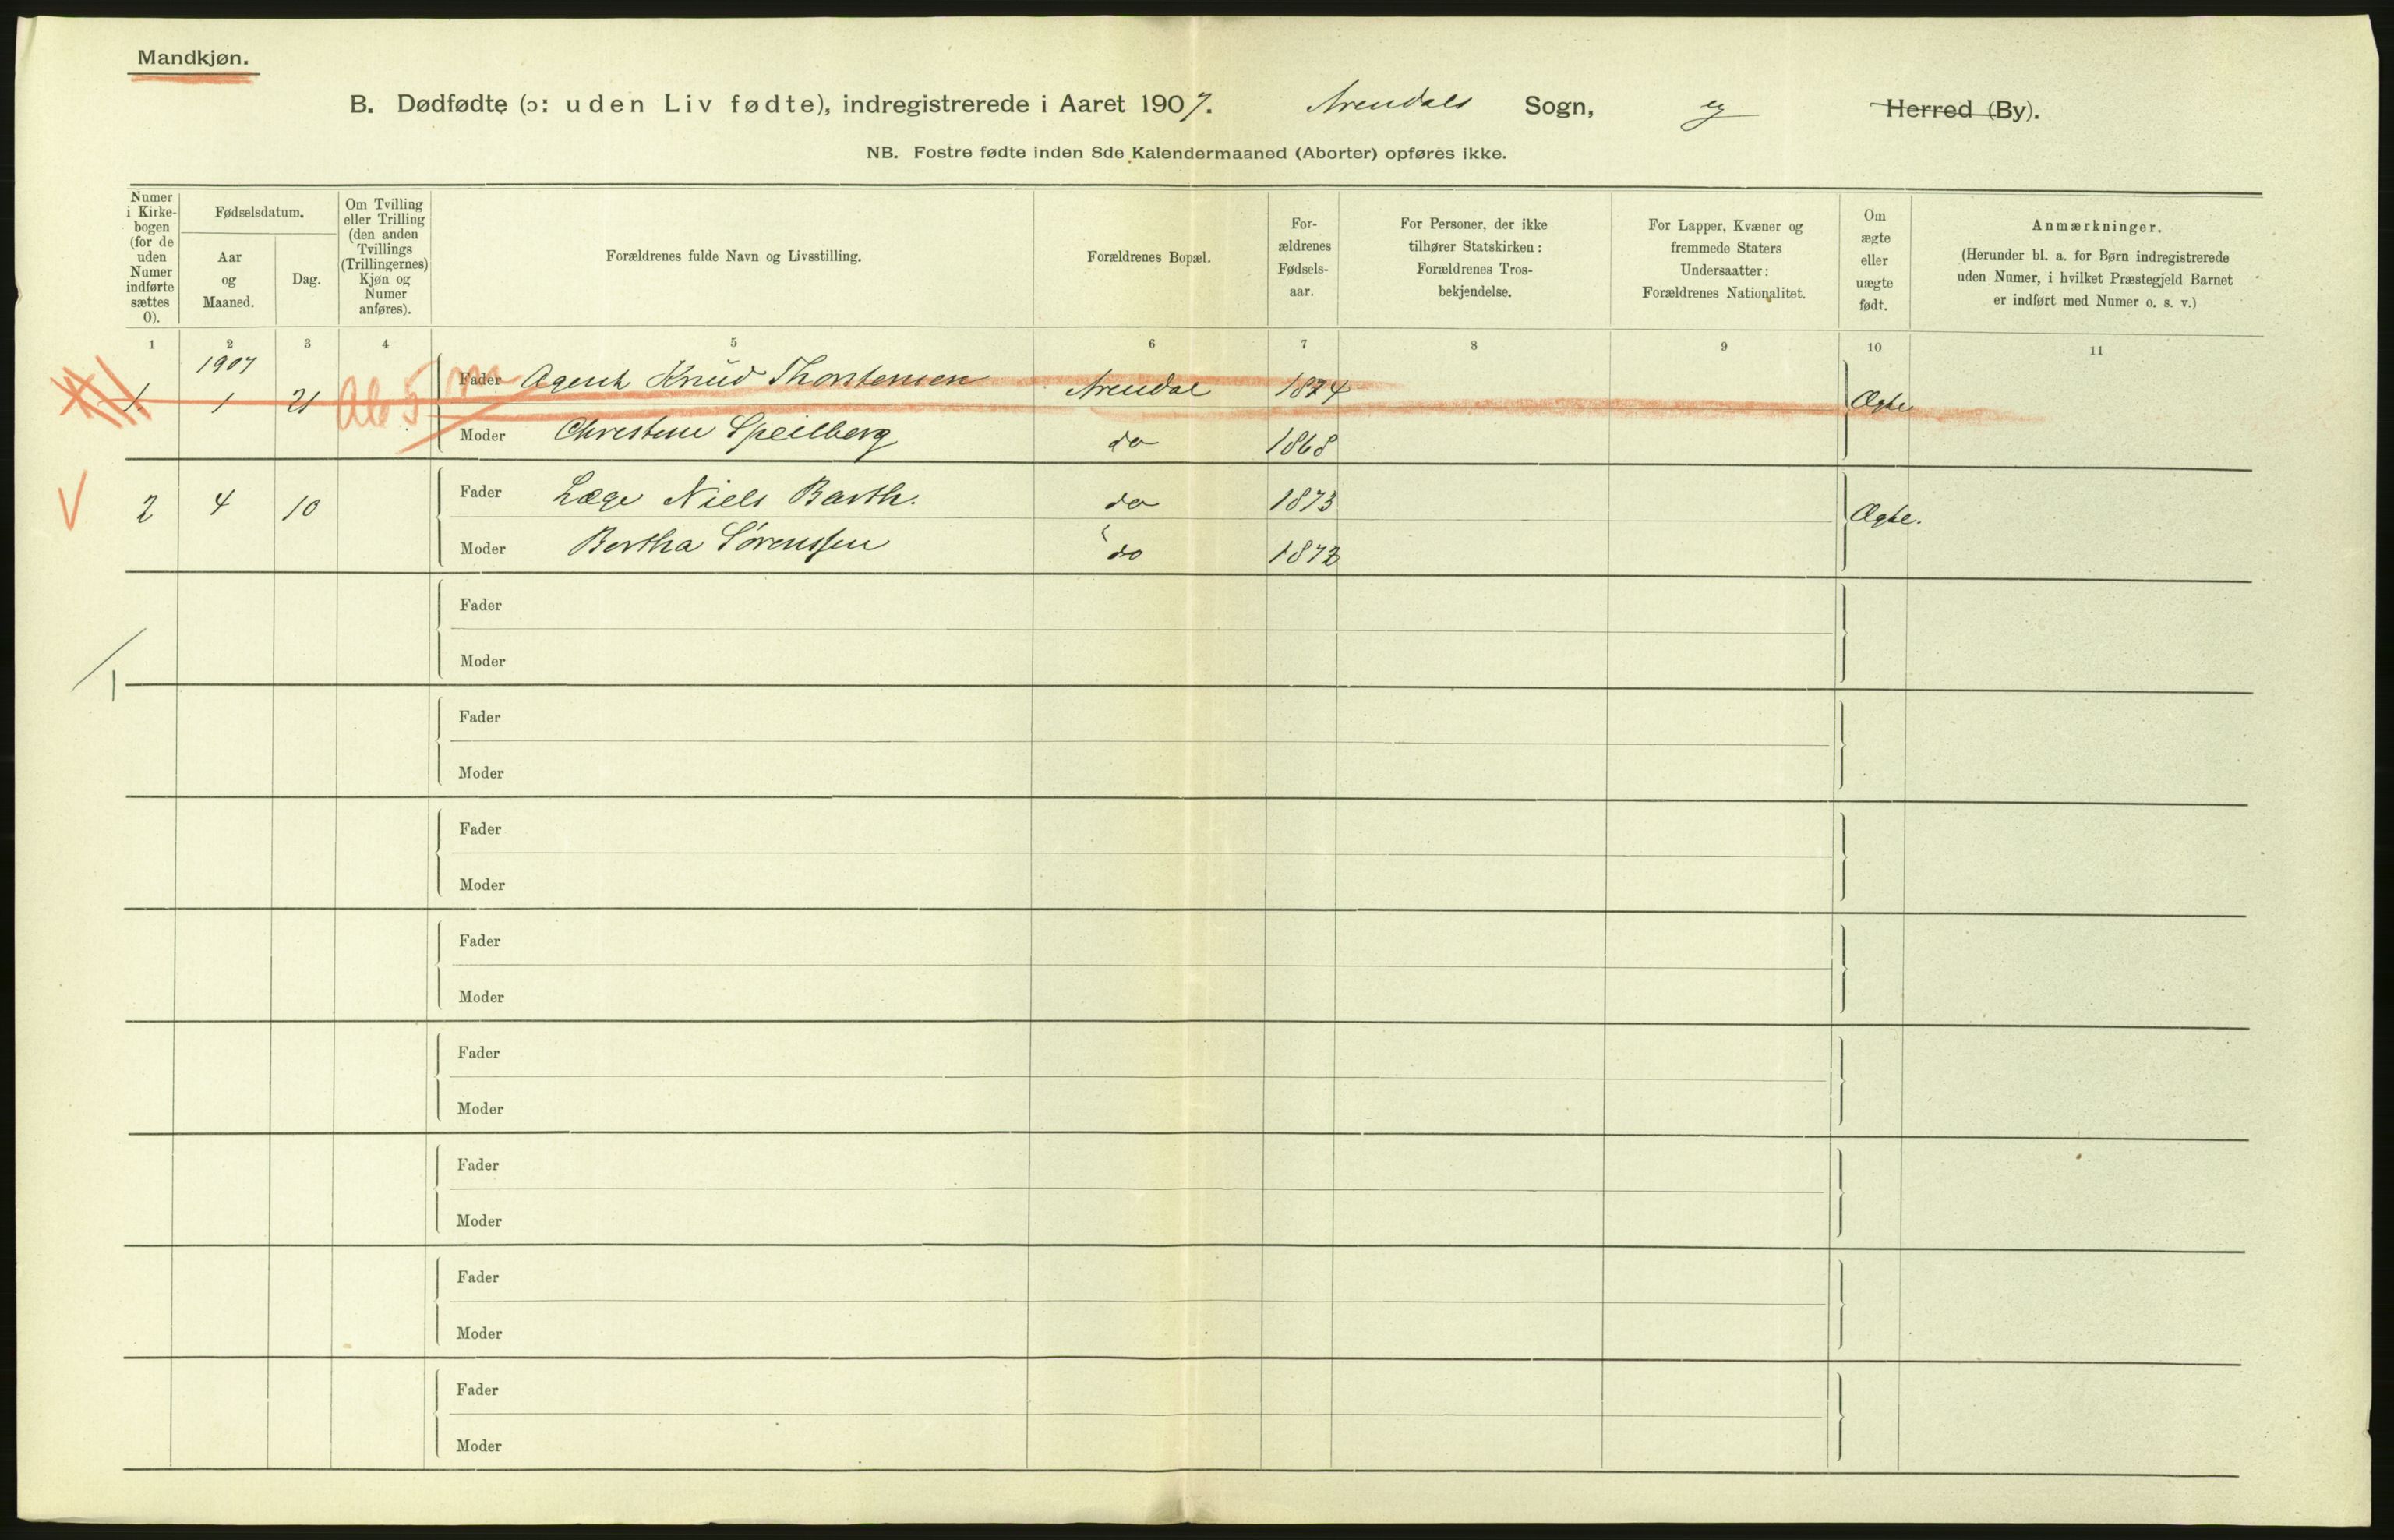 Mandkjøn.
B. Dødfødte (ɔ: uden Liv fødte), indregistrerede i Aaret 1907. Arendals Sogn, og Herred (By).
NB. Fostre fødte inden 8de Kalendermaaned (Aborter) opføres ikke.
Numer i Kirke-bogen (for de uden Numer indførte sættes 0).
Fødselsdatum.
Aar og Maaned.
Dag.
Om Tvilling eller Trilling (den anden Tvillings (Trillingernes) Kjøn og Numer anføres).
Forældrenes fulde Navn og Livsstilling.
Forældrenes Bopæl.
For-ældrenes Fødsels-aar.
For Personer, der ikke tilhører Statskirken: Forældrenes Tros-bekjendelse.
For Lapper, Kvæner og fremmede Staters Undersaatter: Forældrenes Nationalitet.
Om ægte eller uægte født.
Anmærkninger.
(Herunder bl. a. for Børn indregistrerede uden Numer, i hvilket Præstegjeld Barnet er indført med Numer o. s. v.)
1 2 3 4 5 6 7 8 9 10 11
1907
1. 1 21 Ab 5 m Fader Agent Knud Thorstensen Arendal 1874 Ægte
Moder Christine Speilberg do 1868
V 2 4 10 Fader Læge Niels Barth. do 1873 Ægte.
Moder Bertha Sørenssen do 1872
Fader
Moder
/1
Fader
Moder
Fader
Moder
Fader
Moder
Fader
Moder
Fader
Moder
Fader
Moder
Fader
Moder